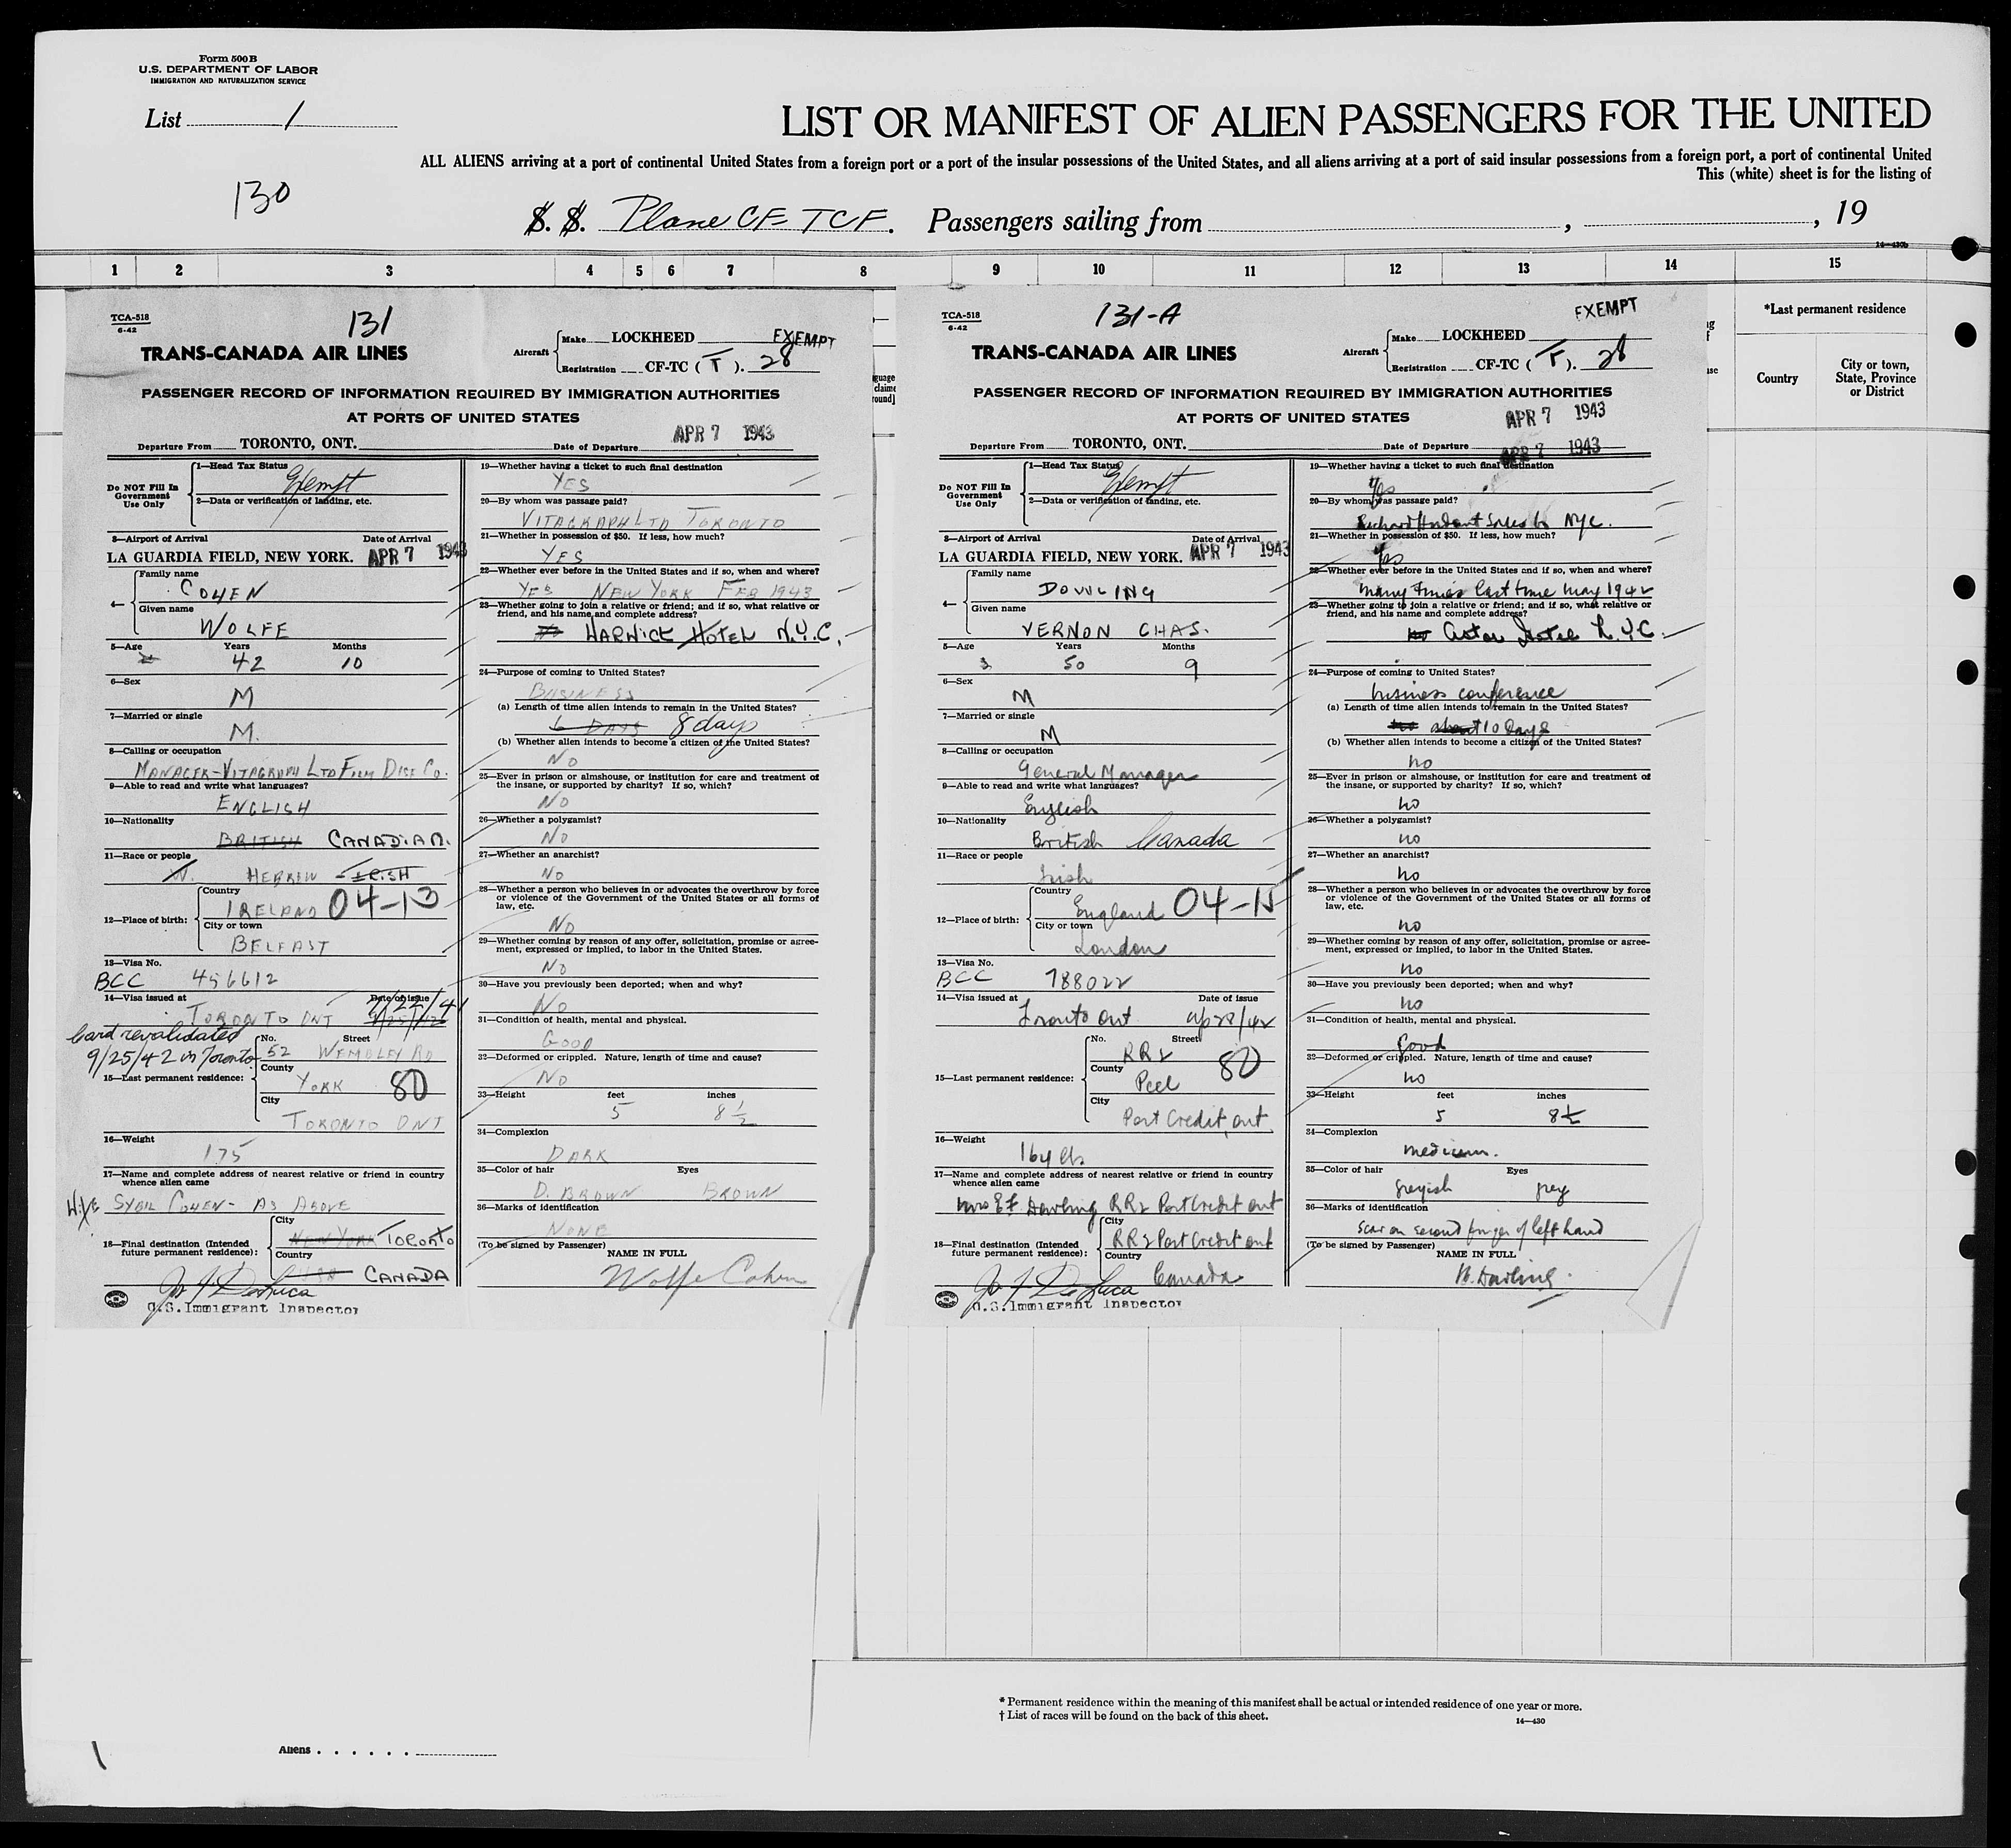 Form 500B
U.S. DEPARTMENT OF LABOR
IMMIGRATION AND NATURALIZATION SERVICE
List 1
LIST OR MANIFEST OF ALIEN PASSENGERS FOR THE UNITED
ALL ALIENS arriving at a port of continental United States from a foreign port or a port of the insular possessions of the United States, and all aliens arriving at a port of said insular possessions from a foreign port, a port of continental United
This (white) sheet is for the listing of
130
S. S. Plane CF-TCF. Passengers sailing from , , 19
14—430b
1 2 3 4 5 6 7 8 9 10 11 12 13 14 15
*Last permanent residence
Country
City or town, State, Province or District
TCA-518
6-42
131
EXEMPT
TRANS-CANADA AIR LINES
Aircraft
Make LOCKHEED
Registration CF-TC ( T ). 28
PASSENGER RECORD OF INFORMATION REQUIRED BY IMMIGRATION AUTHORITIES
AT PORTS OF UNITED STATES
Departure From TORONTO, ONT. Date of Departure APR 7 1943
Do NOT Fill In Government Use Only
1—Head Tax Status
Exempt
2—Data or verification of landing, etc.
3—Airport of Arrival Date of Arrival
LA GUARDIA FIELD, NEW YORK. APR 7 1943
4—
Family name
COHEN
Given name
WOLFE
5—Age Years Months
42 10
6—Sex
M
7—Married or single
M.
8—Calling or occupation
MANAGER-VITAGRAPH LTD FILM DIST CO.
9—Able to read and write what languages?
ENGLISH
10—Nationality
BRITISH CANADIAN.
11—Race or people
W. HEBREW IRISH
12—Place of birth:
Country
IRELAND 04-13
City or town
BELFAST
13—Visa No.
BCC 456612
14—Visa issued at Date of issue
TORONTO ONT 7/22/41
Card revalidated
9/25/42 in Toronto
15—Last permanent residence:
No. Street
52 WEMBLEY RD
County
YORK 80
City
TORONTO ONT
16—Weight
175
17—Name and complete address of nearest relative or friend in country
whence alien came
Wife SYBIL COHEN - AS ABOVE
18—Final destination (Intended
future permanent residence):
City
NEW YORK TORONTO
Country
USA CANADA
U.S. Immigrant Inspector
19—Whether having a ticket to such final destination
YES
20—By whom was passage paid?
VITAGRAPH LTD TORONTO
21—Whether in possession of $50. If less, how much?
YES
22—Whether ever before in the United States and if so, when and where?
YES NEW YORK FEB 1943
23—Whether going to join a relative or friend; and if so, what relative or
friend, and his name and complete address?
WARWICK HOTEL N.Y.C.
24—Purpose of coming to United States?
BUSINESS
(a) Length of time alien intends to remain in the United States?
6 DAYS 8 days
(b) Whether alien intends to become a citizen of the United States?
NO
25—Ever in prison or almshouse, or institution for care and treatment of
the insane, or supported by charity? If so, which?
NO
26—Whether a polygamist?
NO
27—Whether an anarchist?
NO
28—Whether a person who believes in or advocates the overthrow by force
or violence of the Government of the United States or all forms of
law, etc.
NO
29—Whether coming by reason of any offer, solicitation, promise or agree-
ment, expressed or implied, to labor in the United States.
NO
30—Have you previously been deported; when and why?
NO
31—Condition of health, mental and physical.
GOOD
32—Deformed or crippled. Nature, length of time and cause?
NO
33—Height feet inches
5 8 1/2
34—Complexion
DARK
35—Color of hair Eyes
D. BROWN BROWN
36—Marks of identification
NONE
(To be signed by Passenger)
NAME IN FULL
Wolfe Cohen
TCA-518
6-42
131-A
EXEMPT
TRANS-CANADA AIR LINES
Aircraft
Make LOCKHEED
Registration CF-TC ( T ). 28
PASSENGER RECORD OF INFORMATION REQUIRED BY IMMIGRATION AUTHORITIES
AT PORTS OF UNITED STATES
APR 7 1943
Departure From TORONTO, ONT. Date of Departure APR 7 1943
Do NOT Fill In Government Use Only
1—Head Tax Status
Exempt
2—Data or verification of landing, etc.
3—Airport of Arrival Date of Arrival
LA GUARDIA FIELD, NEW YORK. APR 7 1943
4—
Family name
DOWLING
Given name
VERNON CHAS.
5—Age Years Months
50 9
6—Sex
M
7—Married or single
M
8—Calling or occupation
General Manager
9—Able to read and write what languages?
English
10—Nationality
British Canada
11—Race or people
Irish
12—Place of birth:
Country
England 04-15
City or town
London
13—Visa No.
BCC 788022
14—Visa issued at Date of issue
Toronto Ont Ap 28/42
15—Last permanent residence:
No. Street
RR2
County
Peel 80
City
Port Credit, Ont
16—Weight
164 lbs
17—Name and complete address of nearest relative or friend in country
whence alien came
Mrs Dowling RR2 Port Credit Ont
18—Final destination (Intended
future permanent residence):
City
RR2 Port Credit Ont
Country
Canada
U.S. Immigrant Inspector
19—Whether having a ticket to such final destination
Yes
20—By whom was passage paid?
Richard Hudnut Sales Co NYC.
21—Whether in possession of $50. If less, how much?
Yes
22—Whether ever before in the United States and if so, when and where?
Many times last time May 1942
23—Whether going to join a relative or friend; and if so, what relative or
friend, and his name and complete address?
Astor Hotel N.Y.C.
24—Purpose of coming to United States?
business conference
(a) Length of time alien intends to remain in the United States?
about 10 days
(b) Whether alien intends to become a citizen of the United States?
no
25—Ever in prison or almshouse, or institution for care and treatment of
the insane, or supported by charity? If so, which?
no
26—Whether a polygamist?
no
27—Whether an anarchist?
no
28—Whether a person who believes in or advocates the overthrow by force
or violence of the Government of the United States or all forms of
law, etc.
no
29—Whether coming by reason of any offer, solicitation, promise or agree-
ment, expressed or implied, to labor in the United States.
no
30—Have you previously been deported; when and why?
no
31—Condition of health, mental and physical.
Good
32—Deformed or crippled. Nature, length of time and cause?
no
33—Height feet inches
5 8 1/2
34—Complexion
medium.
35—Color of hair Eyes
greyish grey
36—Marks of identification
scar on second finger of left hand
(To be signed by Passenger)
NAME IN FULL
* Permanent residence within the meaning of this manifest shall be actual or intended residence of one year or more.
† List of races will be found on the back of this sheet.
14—430
Aliens